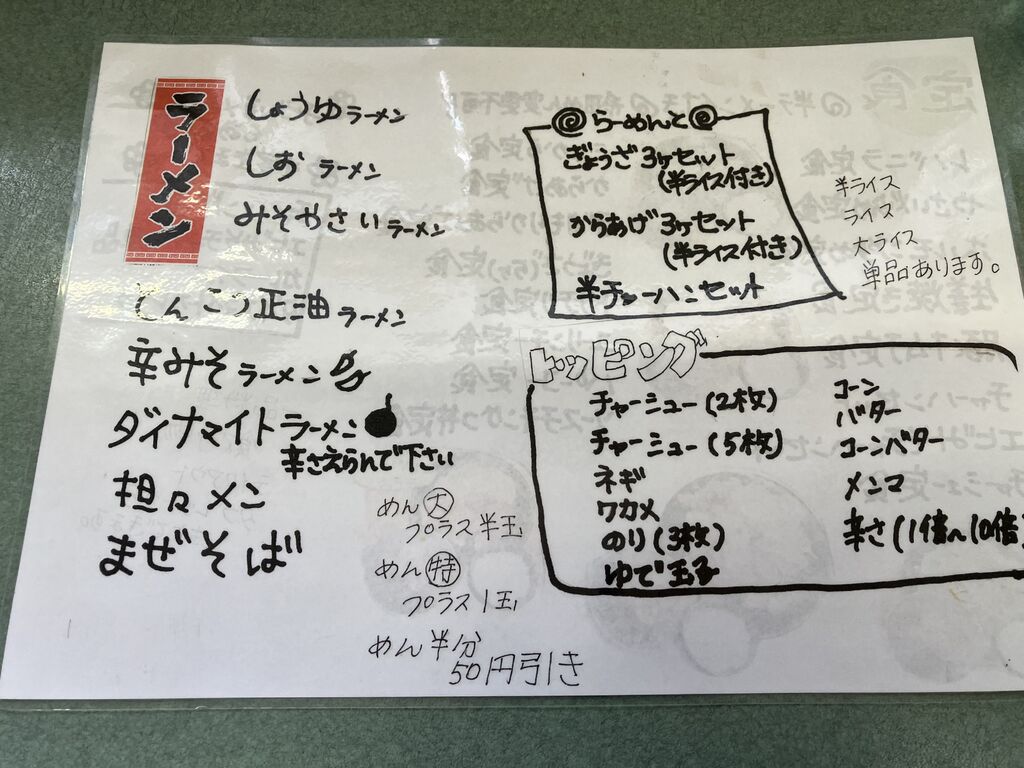 ラーメン
しょうゆラーメン
しおラーメン
みそやさいラーメン
とんこつ正油ラーメン
辛みそラーメン
ダイナマイトラーメン
辛さえらんで下さい
担々メン
まぜそば
めん大
プラス半玉
めん特
プラス1玉
めん半分
50円引き
らーめんと
ぎょうざ3ヶセット
(半ライス付き)
からあげ3ヶセット
(半ライス付き)
半チャーハンセット
半ライス
ライス
大ライス
単品あります。
トッピング
チャーシュー(2枚)
チャーシュー(5枚)
ネギ
ワカメ
のり(3枚)
ゆで玉子
コーン
バター
コーンバター
メンマ
辛さ(1倍~10倍)